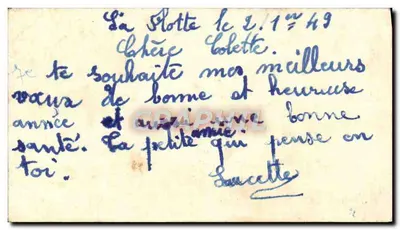 La Flotte le 2. 1er 49
Chère Colette.
je te souhaite mes meilleurs
vœux de bonne et heureuse
année et aussi une bonne
santé. Ta petite amie qui pense en
toi.
Lucette